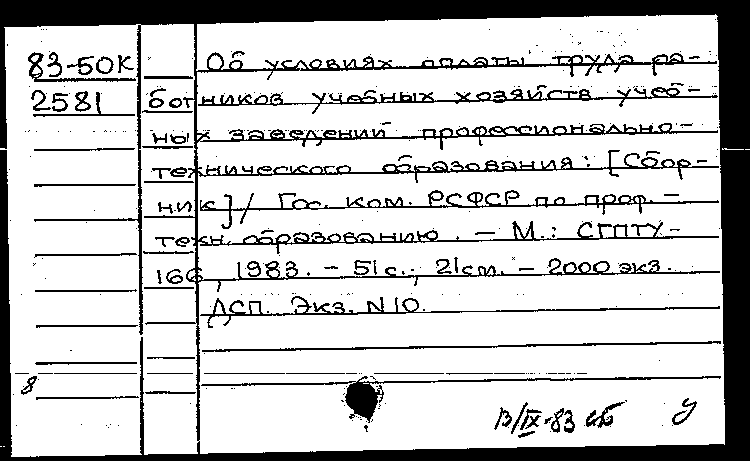 83-50К Об условиях оплаты труда ра-
2581 ботников учебных хозяйств учеб-
ных заведений профессионально-
технического образования: [Сбор-
ник] / Гос. ком. РСФСР по проф.-
техн. образованию. - М.: СГПТУ-
166, 1983. - 51 с.; 21 см. - 2000 экз.
ДСП. Экз. N 10.
8
13/IX-83 У